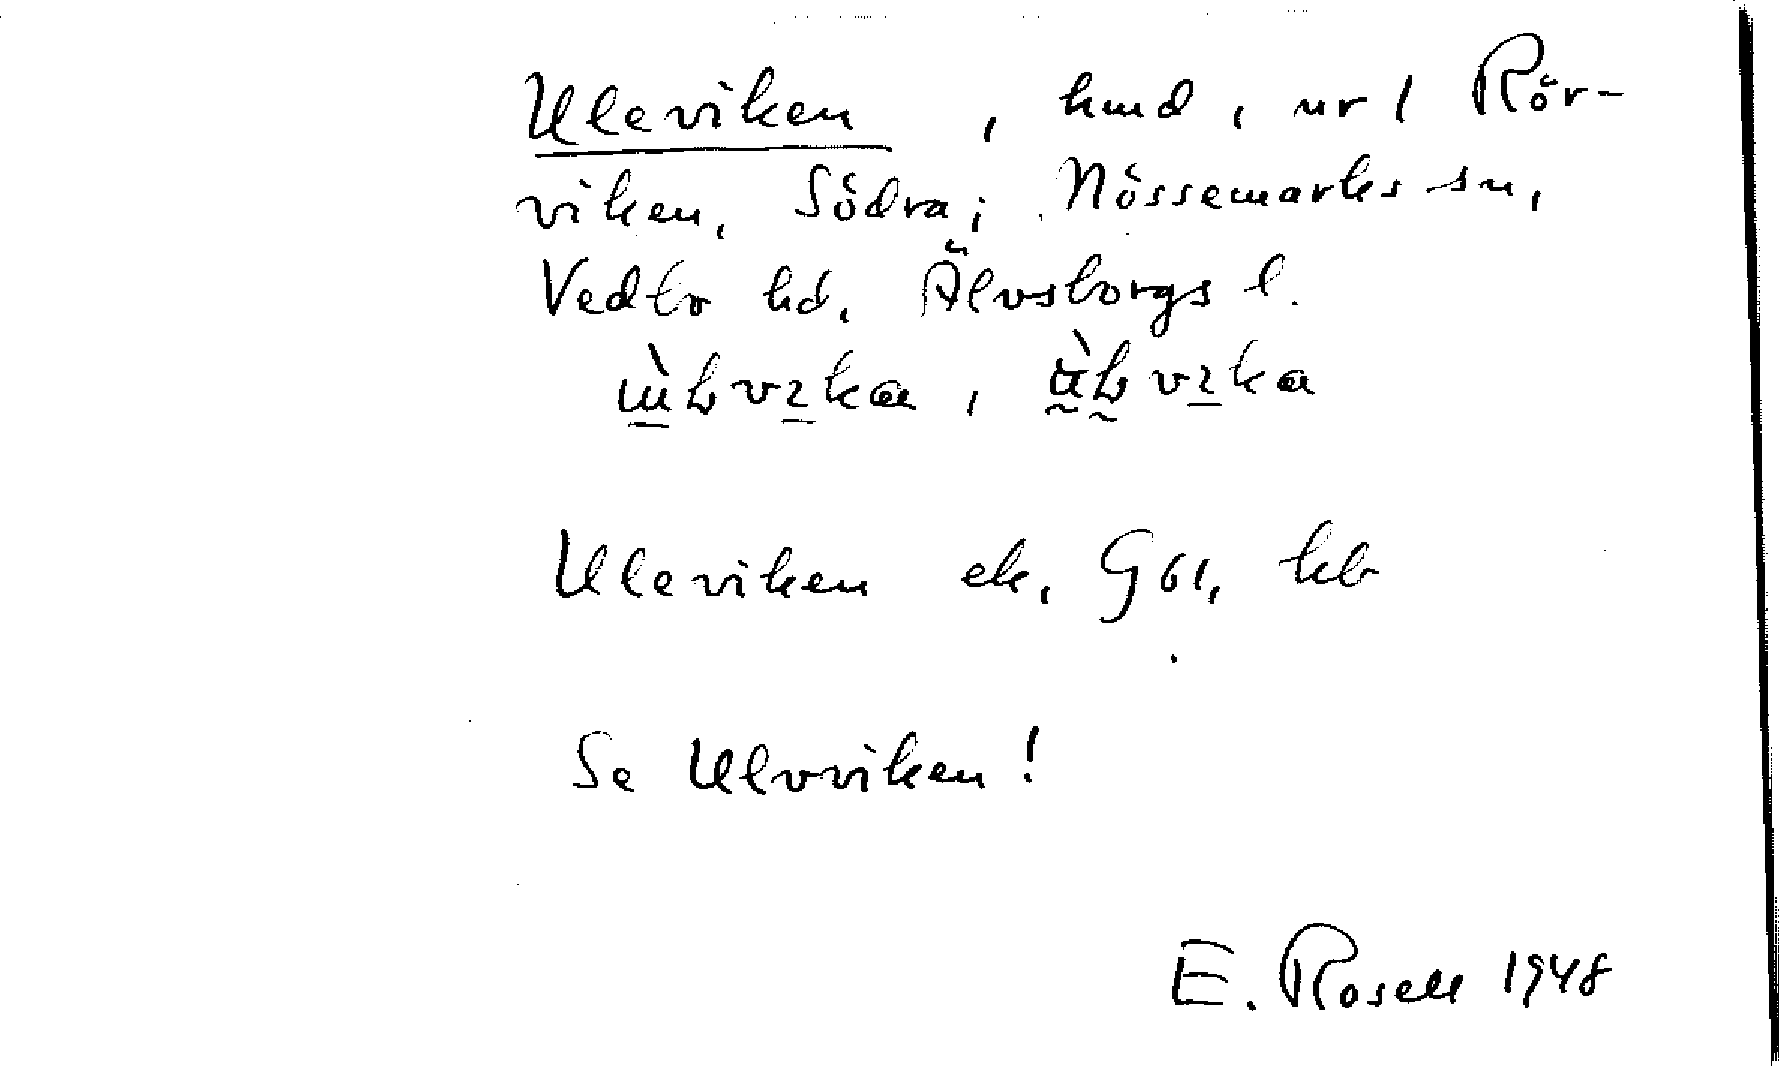 Uleviken, hmd, nr 1 Rör-
viken, Södra; Nössemarks sn,
Vedbo hd, Älvsborgs l.
Uleviken ek, G61, kb
Se Ulvviken!
E. Rosell 1948